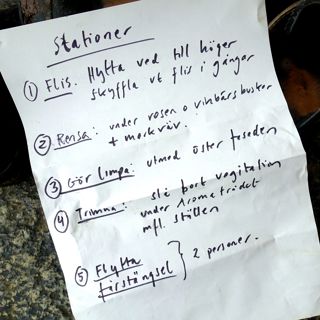 Stationer
① Flis. Flytta ved till höger
skyffla ut flis i gångar
② Rensa: under rosen o vinbärsbuskar
+ maskros.
③ Gör limpa: utmed öster
④ Trimma: slå bort vegitation
under Aroma trädet
mfl. ställen
⑤ Flytta
förstängsel } 2 personer.